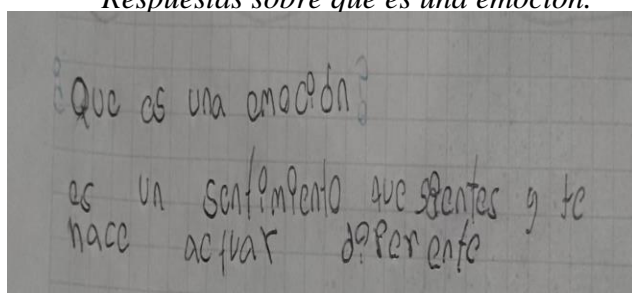 Respuestas sobre que es una emoción.
¿Que es una emoción?
es un sentimiento que sientes y te
hace actuar diferente